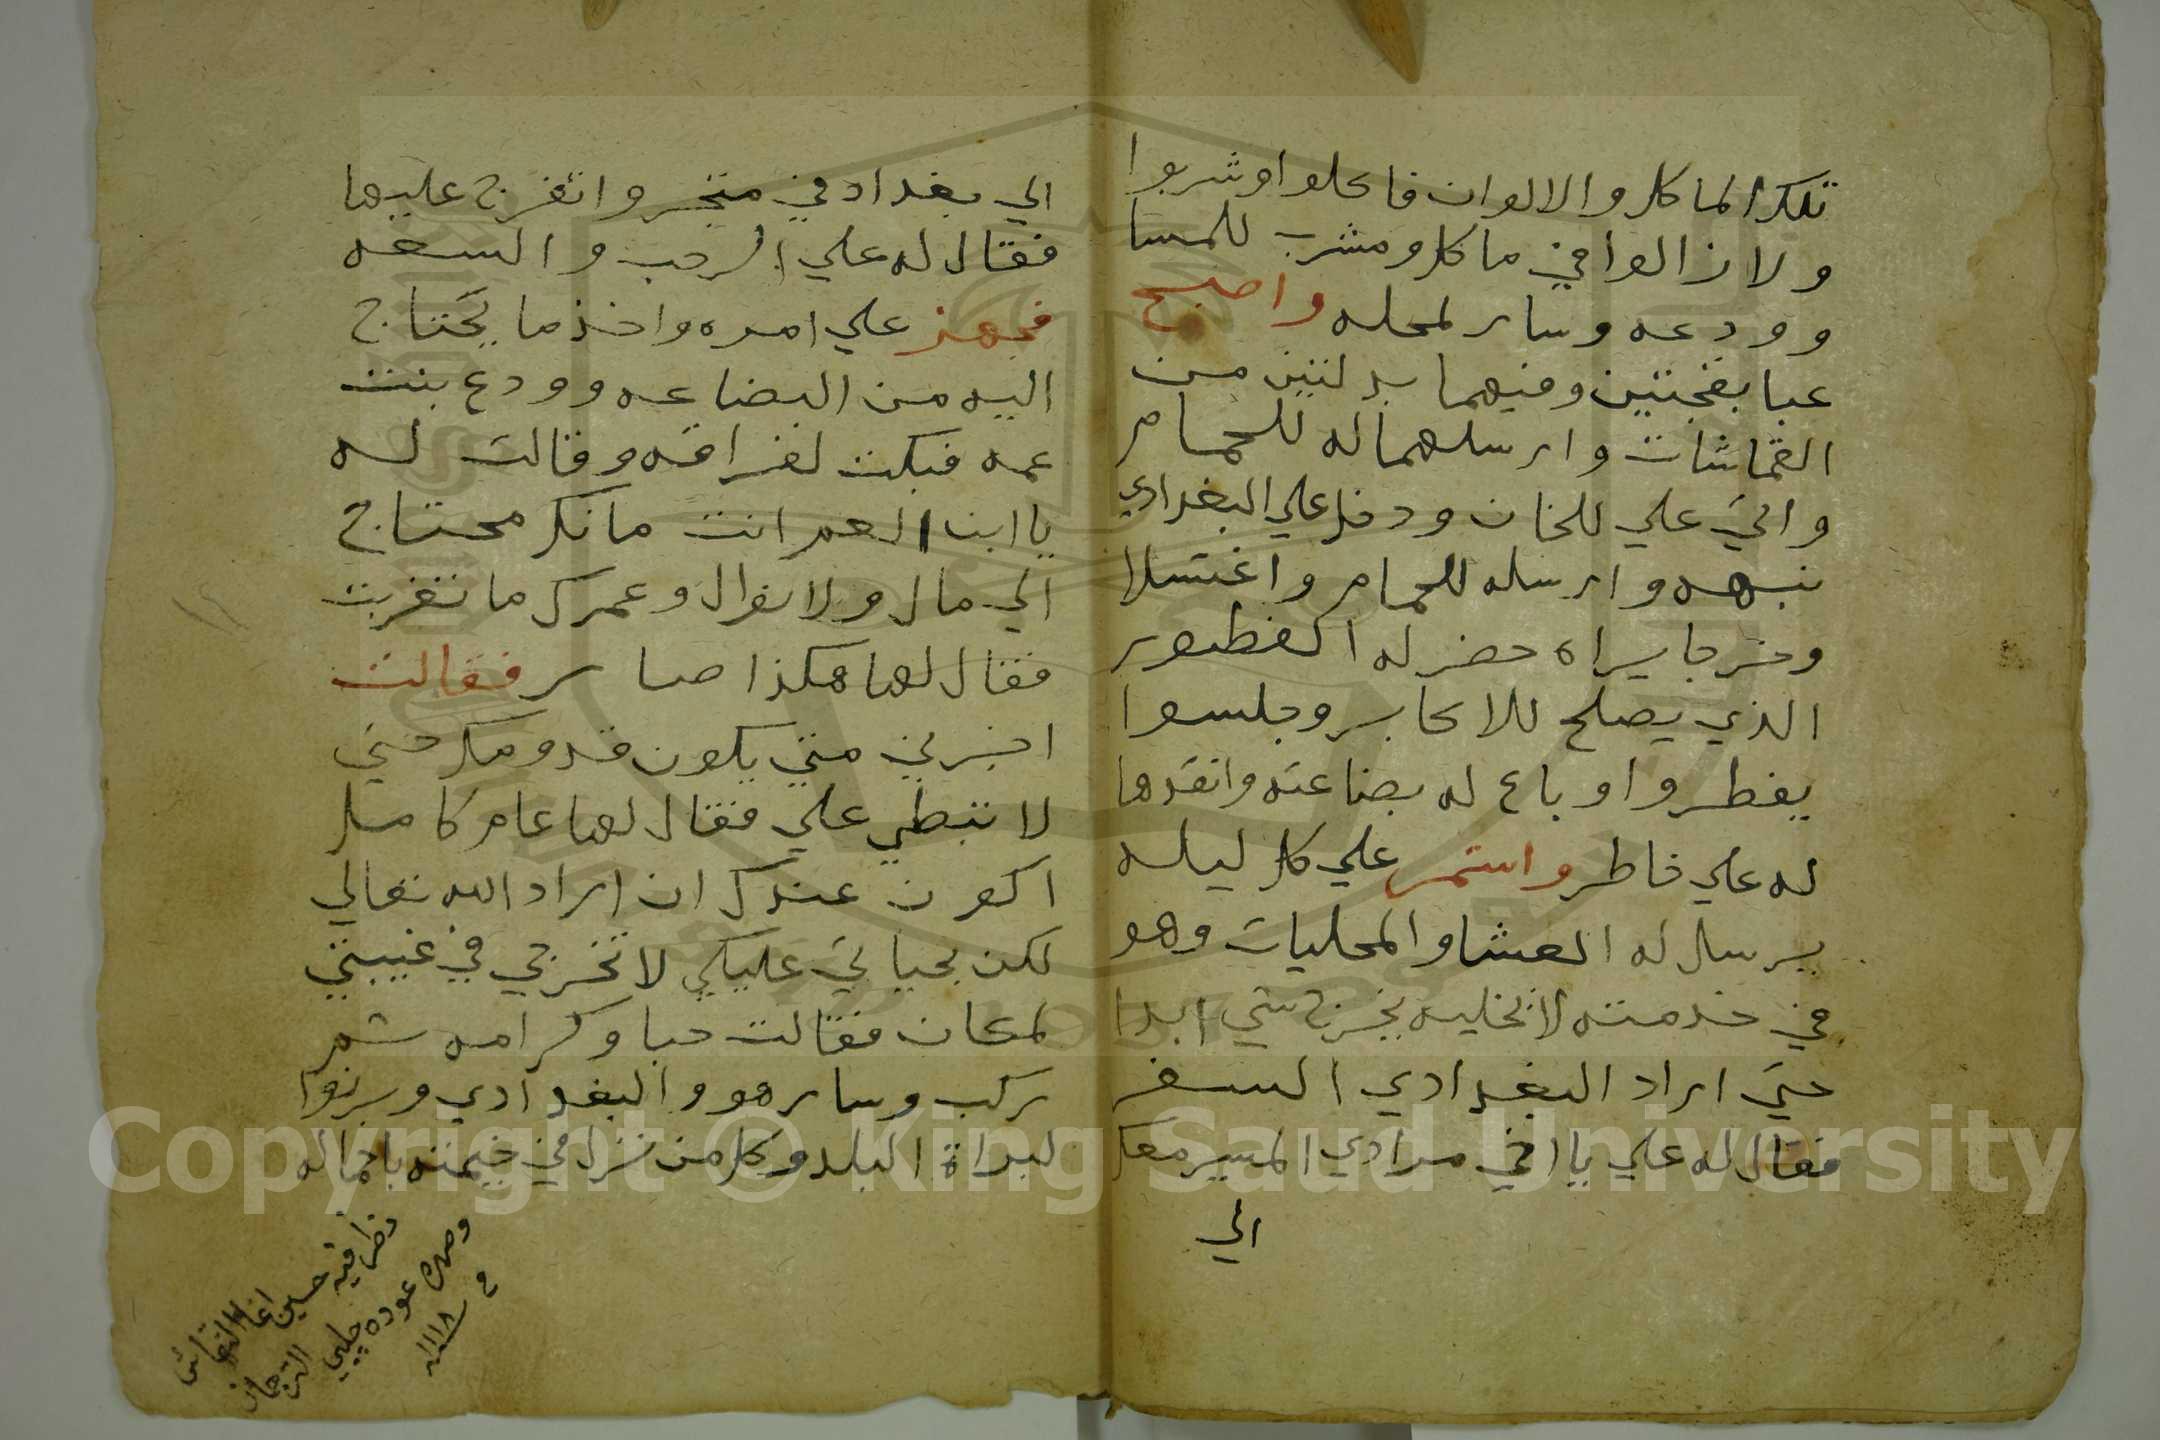 تلك الماكل والالوان فاكلوا وشربوا
ولا زالوا في ماكل ومشرب للمسا
وودعه وسار لمحله واصبح
عبا بقجتين وفيهما بدلتين من
القماشات وارسلهما له للحمام
واتي علي للخان ودخل علي البغدادي
نبهه وارسله للحمام واغتسلا
وخرجا يراه حضر له الفطور
الذي يصلح للاكابر وجلسوا
يفطروا وباع له بضاعته وانقدها
له علي خاطر واستمر علي كل ليله
يرسل له العشا والمحليات وهو
في خدمته لا يخليه يخرج شي ابدا
حتي اراد البغدادي السفر
فقال له علي يا اخي مرادي المسير معك
الي
الي بغداد في متجر واتفرج عليها
فقال له علي الرحب والسعه
فجهز علي امره واخذ ما يحتاج
اليه من البضاعه وودع بنت
عمه فبكت لفراقه وقالت له
يا ابن العم انت مانك محتاج
الي مال ولا نوال وعمرك ما تغربت
فقال لها هكذا صار فقالت
اخبرني متي يكون قدومك حتي
لا تبطي علي فقال لها عام كامل
اكون عندك ان اراد الله تعالي
لكن بحياتي عليكي لا تخرجي في غيبتي
لمكان فقالت حبا وكرامه ثم
ركب وسار هو والبغدادي وبرزوا
لبراة البلد وكل من نزل في خيمته باحماله
نظر فيه حسين اغا النقاش
وصهره عوده چلبي الترجمان
في
١١١٨ سنه
Copyright © King Saud University